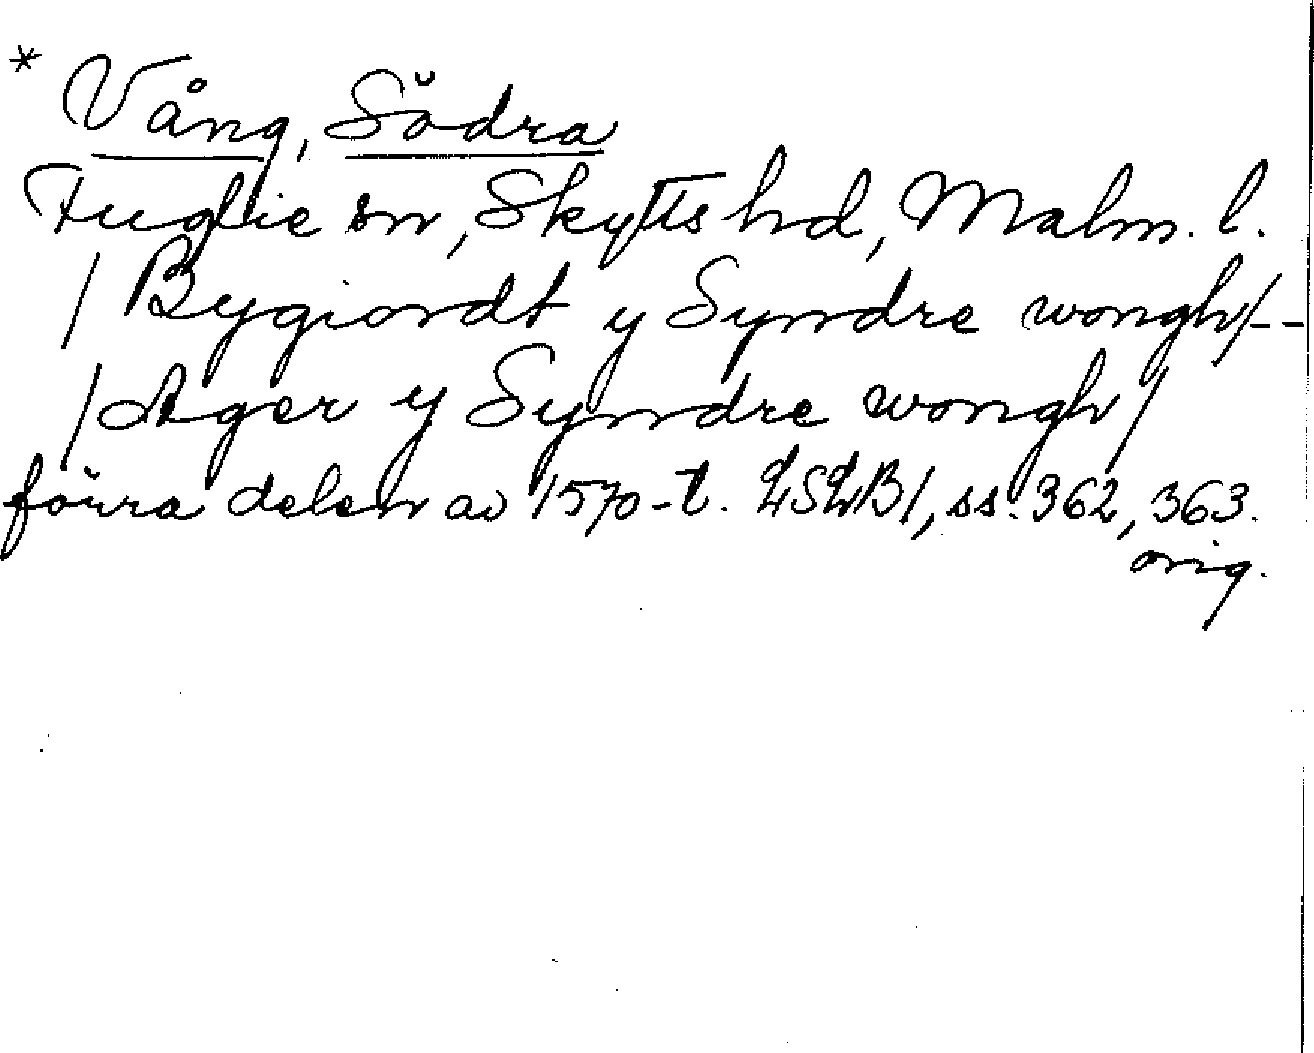 * Vång, Södra
Fuglie sn, Skytts hd, Malm. l.
/ Bygiordt y Syndre wongh/--
/Ager y Syndre wongh/
förra delen av 1570-t. LSLB1, ss. 362, 363.
orig.